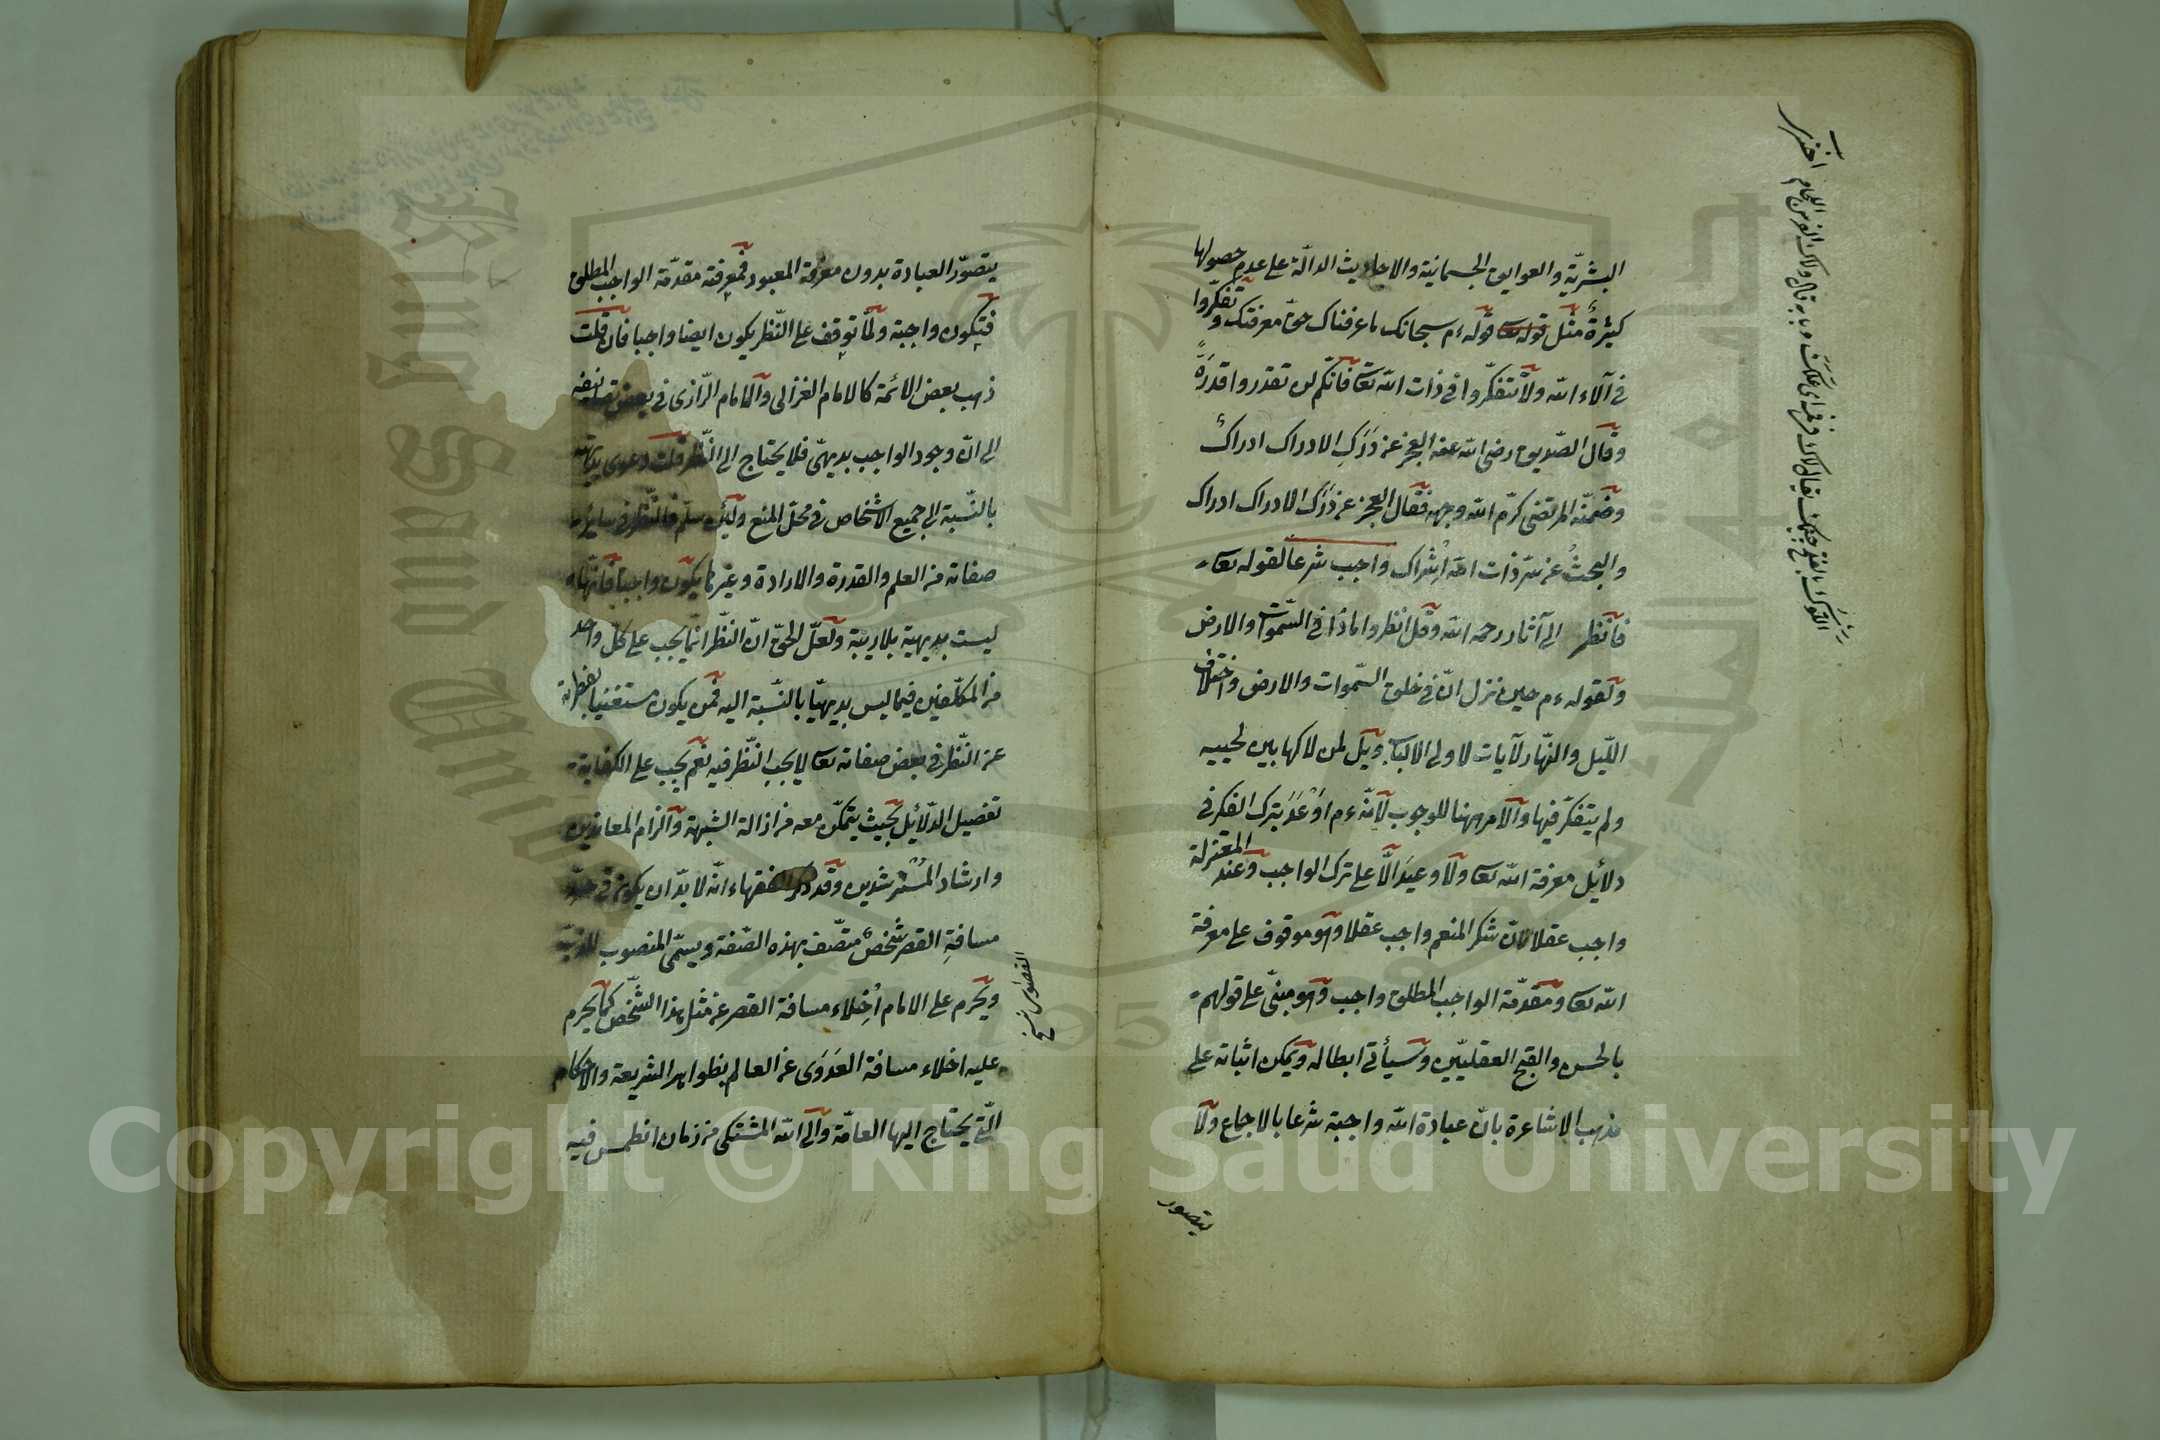 البشريّة والعوايق الجسمانية والاحاديث الدالّة على عدم حصولها
كثيرةٌ مثل قوله ءم سبحانك ما عرفناك حق معرفتك و تفكّروا
فى آلاء الله ولا تتفكّروا فى ذات الله تعا فانكم لن تقدروا قدره
وقال الصّديق رضى الله عنه العجز عن دَرَكِ الادراك ادراك
وضمّنه المرتضى كرّم الله وجهه فقال العجز عن درَك الادراك ادراك
والبحثُ عن سرّ ذات الله اِشراك واجب شرعا لقوله تعا
فانظر الى آثار رحمه الله وقل انظروا ماذا فى السّموات والارض
ولقوله ءم حين نزل انّ فى خلق السّموات والارض واختلاف
اللّيل والنّهار لآيات لاولى الالباب ويل لمن لاكها بين لحييه
ولم يتفكّر فيها والامر ههنا للوجوب لانّه ءم اَوْعَدَ بترك الفكر فى
دلائل معرفة الله تعا ولا وعيدَ الّا على ترك الواجب وعند المعتزلة
واجب عقلا لانّ شكر المنعم واجب عقلا وهو موقوف على معرفة
الله تعا ومقدّمة الواجب المطلق واجب وهو مبنىّ على قولهم
بالحسن والقبح العقليّين وسيأتى ابطاله ويمكن اثباته على
مذهب الاشاعرة بانّ عبادة الله واجبة شرعا بالاجماع ولا
يتصور
يتصوّر العبادة بدون معرفة المعبود فمعرفته مقدّمة الواجب المطلق
فتكون واجبة ولمّا توقف على النّظر يكون ايضا واجبا فان قلت
ذهب بعض الائمّة كالامام الغزالى والامام الرّازى فى بعض تصانيفه
الى انّ وجود الواجب بديهىّ فلا يحتاج الى النّظر قلت دعوى بداهته
بالنّسبة الى جميع الاشخاص فى محلّ المنع ولئن سلّم فالنّظر فى سائر
صفاته من العلم والقدرة والارادة وغيرها يكون واجبا فانّها
ليست بديهية بلا ريبة ولعلّ الحقّ انّ النظر انّما يجب على كلّ واحد
من المكلّفين فيما ليس بديهيّا بالنّسبة اليه فمن يكون مستغنيا بفطرته
عن النّظر فى بعض صفاته تعا لا يجب النّظر فيه نعم يجب على الكفاية
تفصيل الدّلائل بحيث يتمكّن معه من ازالة الشبهة والزام المعاندين
وارشاد المُسْترشدين وقد ذكر الفقهاء انّه لا بدّ ان يكون فى حدّ
مسافةِ القصر شخصٌ متّصف بهذه الصّفة ويسمّى المنصوب للذبّ
ويحرم على الامام اُخلاء مسافة القصر عن مثل هذا الشّخص كما يحرم
عليه اخلاء مسافة العَدوَى عن العالم بظواهر الشريعة والاحكام
الّتى يحتاج اليها العامّة والى الله المشتكى من زمان انطمس فيه